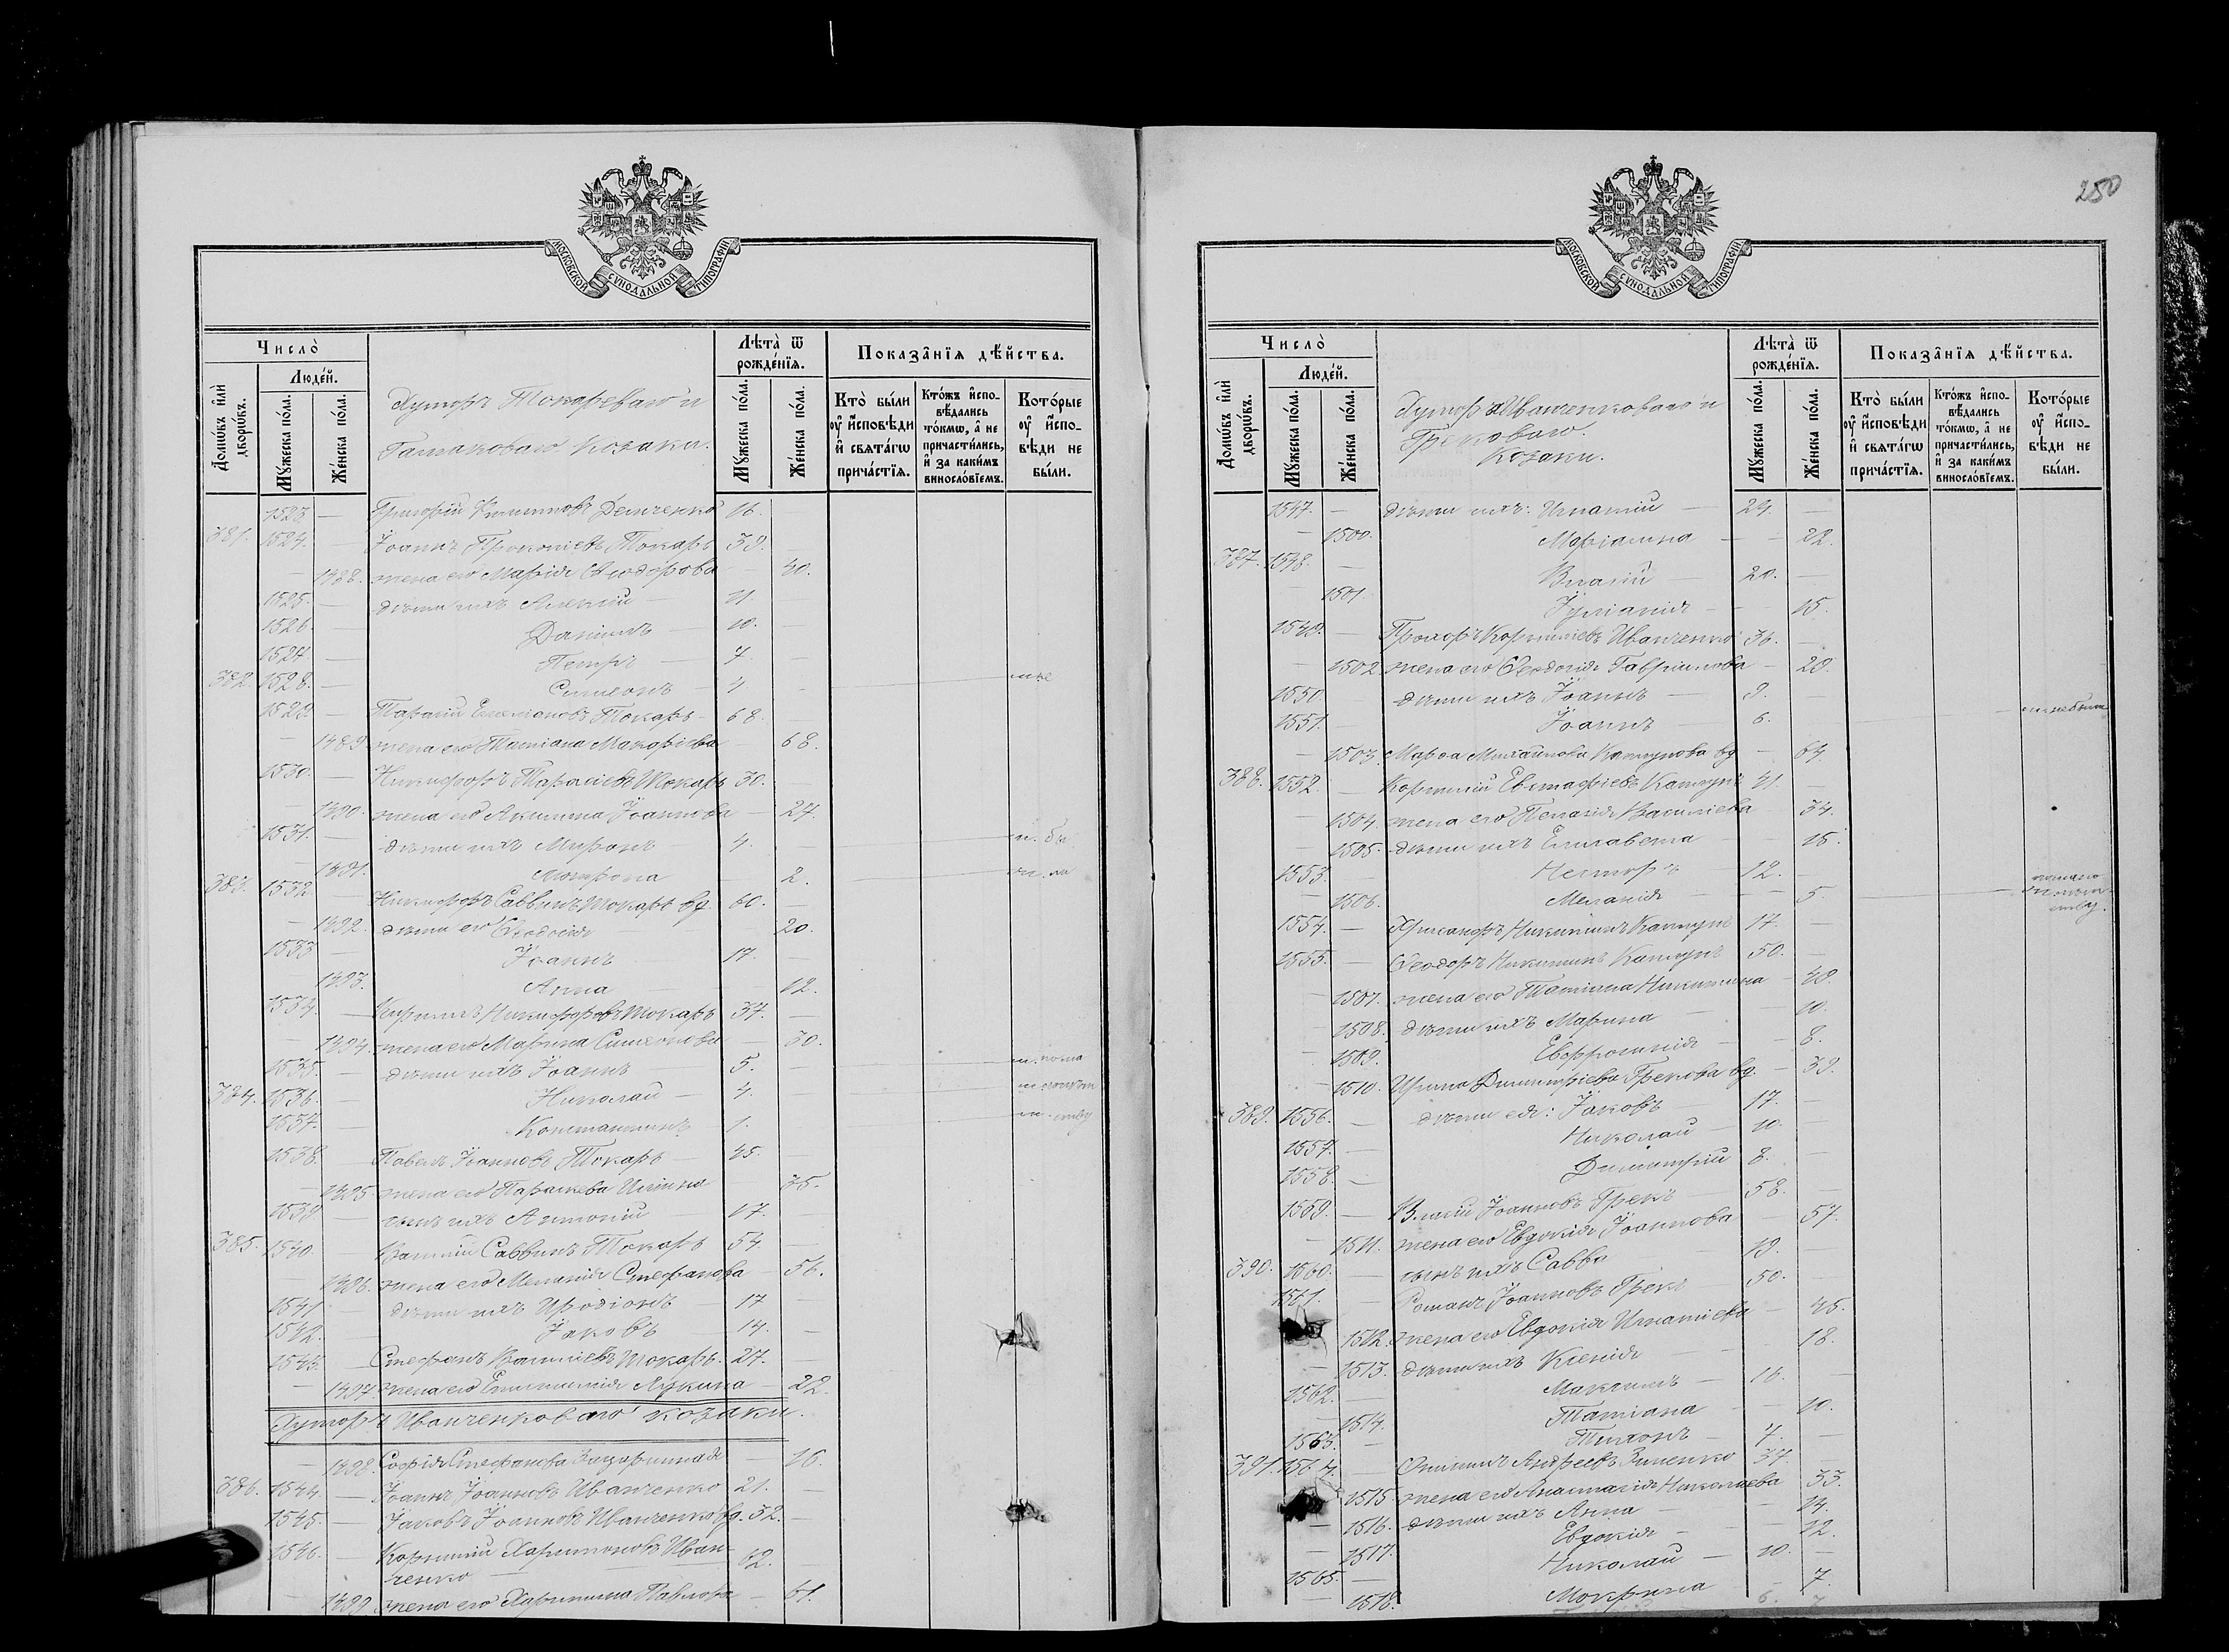 МОСКОВСКОЙ СѴНОДАЛЬНОЙ ТИПОГРАФІИ
Число̀
Люде́й.
Домѡ́въ и҆лѝ дворѡ́въ.
Мꙋ́жеска по́ла.
Же́нска по́ла.
Хуторъ Токареваго и
козаки.
Лѣта̀ ѿ рожде́нїѧ.
Мꙋ́жеска по́ла.
Же́нска по́ла.
Показа̑нїѧ дѣ́йства.
Кто̀ бы́ли ᲂу҆ и҆сповѣди и҆ свѧта́гѡ прича́стїѧ.
Кто́жъ и҆спо-
вѣдались
то́кмѡ, а҆ не
причасти́лись,
и҆ за каки́мъ
винослόвїемъ.
Кото́рые
ᲂу҆ и҆спо-
вѣди не
бы́ли.
1523. — Григорій Демченко 16. —
381. 1524. — Іоаннъ Прокопіевъ Токарь 39. —
— 1488. жена его Марія Ѳеодорова — 40.
1525. — дѣти ихъ Алексій — 11. —
1526. — Даніилъ — 10. —
1527. — Петръ — 7. —
382. 1528. — Симеонъ — 4. —
1529. — Тарасій Емеліановъ Токарь 68. —
— 1489. жена его Татіана Макаріева — 68.
1530. — Никифоръ Тарасіевъ Токарь 30. —
— 1490. жена его Акилина Іоаннова — 27.
1531. — дѣти ихъ Миронъ — 4. —
— 1491. Мотрона — 2.
383. 1532. — Никифоръ Саввинъ Токарь вд. 60. —
— 1492. дѣти его Ѳеодосія — 20.
1533. — Іоаннъ — 17. —
— 1493. Анна — 12.
1534. — Кириллъ Никифоровъ Токарь 37. —
— 1494. жена его Марина Симеонова — 30.
1535. — дѣти ихъ Іоаннъ — 5. —
384. 1536. — Николай — 4. —
1537. — Константинъ 1. —
1538. — Павелъ Іоанновъ Токарь — 45. —
— 1495. жена его Параскева Ильина — 35.
1539. — сынъ ихъ Антоній — 17. —
385. 1540. — Василій Саввинъ Токарь 54. —
— 1496. жена его Меланія Стефанова — 56.
1541. — дѣти ихъ Иродіонъ — 17 —
1542. — Іаковъ 14. —
1543. — Стефанъ Василіевъ Токарь. 27. —
— 1497. жена его Лукина — 22.
Хуторъ Иванченковаго козаки.
— 1498. Софія Стефанова — 16.
386. 1544. — Іоаннъ Іоанновъ Иванченко 21. —
1545. — Іаковъ Іоанновъ Иванченко вд. 32. —
1546. — Корнилій Харитоновъ Иван-
ченко — 62. —
— 1499. жена его Харитина Павлова — 61.
250
МОСКОВСКОЙ СѴНОДАЛЬНОЙ ТИПОГРАФІИ
Число̀
Люде́й.
Домѡ́въ и҆лѝ дворѡ́въ.
Мꙋ́жеска по́ла.
Же́нска по́ла.
Хуторъ Иванченковаго и
Грековаго.
Козаки.
Лѣта̀ ѿ рожде́нїѧ.
Мꙋ́жеска по́ла.
Же́нска по́ла.
Показа̑нїѧ дѣ́йства.
Кто̀ бы́ли ᲂу҆ и҆сповѣди и҆ свѧта́гѡ прича́стїѧ.
Кто́жъ и҆спо-
вѣдались
то́кмѡ, а҆ не
причасти́лись,
и҆ за каки́мъ
винослόвїемъ.
Кото́рые
ᲂу҆ и҆спо-
вѣди не
бы́ли.
1547. — дѣти ихъ: Игнатій — 24. —
— 1500. Маріамна — — 22.
387. 1548. — Власій — 20. —
— 1501. Іуліанія — — 15.
1549. — Прохоръ Корниліевъ Иванченко 36. —
— 1502. жена его Ѳеодосія Гавріилова — 29.
1550. — дѣти ихъ Іоаннъ — 9. —
1551. — Іоаннъ — 6. —
— 1503. Марѳа Михайлова вд. — 64.
388. 1552. — Корнилій Евстафіевъ 41. —
— 1504. жена его Пелагія Василіева — 34.
— 1505. дѣти ихъ Елисавета — 15.
1553. — Несторъ 12. —
— 1506. Меланія — — 5.
1554. — Хрисанфъ Никитинъ 17. —
1555. — Ѳеодоръ Никитинъ 50. —
— 1507. жена его Татіана Никитина — 49.
— 1508. дѣти ихъ Марина — 10.
— 1509. Евфросинія — 8.
— 1510. Ирина Димитріева Грекова вд. — 39.
389. 1556. — дѣти ея: Іаковъ — 17. —
1557. — Николай — 10. —
1558. — Димитрій 8. —
1559. — Власій Іоанновъ Грекъ — 58. —
— 1511. жена его Евдокія Іоаннова — 57.
390. 1560. — сынъ ихъ Савва — 19. —
1561. — Романъ Іоанновъ Грекъ — 50. —
1512. жена его Евдокія Игнатіева — 45.
— 1513. дѣти ихъ Ксенія — 18.
1562. — Максимъ — 16. —
— 1514. Татіана — 10.
1563. — Тихонъ — 7. —
391. 1564. — Андреевъ Зиненко 37. —
1515. жена его Анастасія Николаева 33.
— 1516. дѣти ихъ Анна — — 14.
— 1517. Евдокія — 12.
1565. — Николай — 10. —
— 1518. Мокрина — 7.